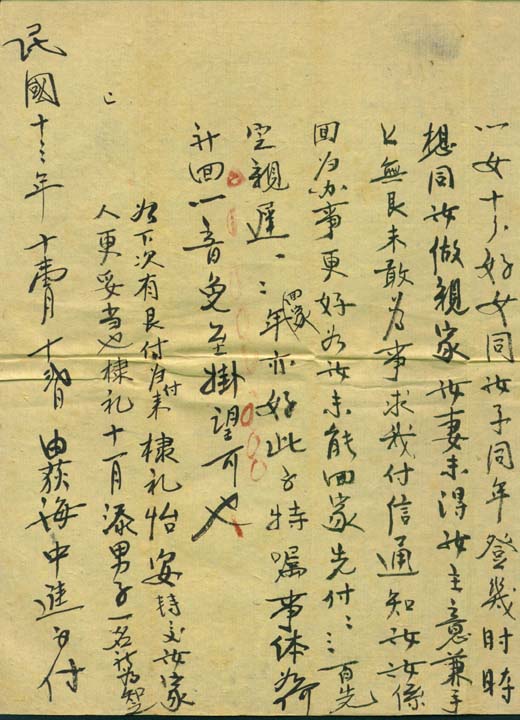 以女十分好女同汝子同年登幾时時
想同汝做親家汝妻未得汝主意兼手
上無艮未敢為事求我付信通知汝汝係
回为办事更好为汝未能回家先付二三百先
定親遲一二年回家亦好此子特嘱事体如何
祈回以音免至掛望可也
如下次有艮付为付来棣礼怡安特交汝家
人更妥当也棣礼十一月添男子一名
民國十三年十月十日由荻海中進付